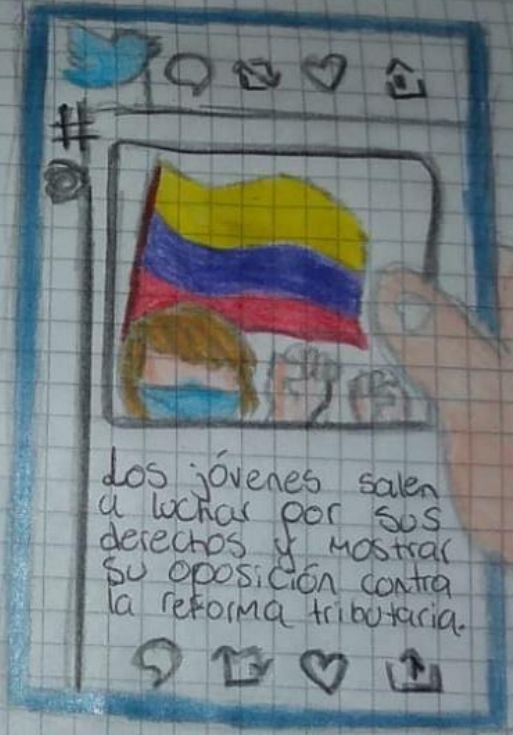 #
Los jóvenes salen
a luchar por sus
derechos y mostrar
su oposición contra
la reforma tributaria.